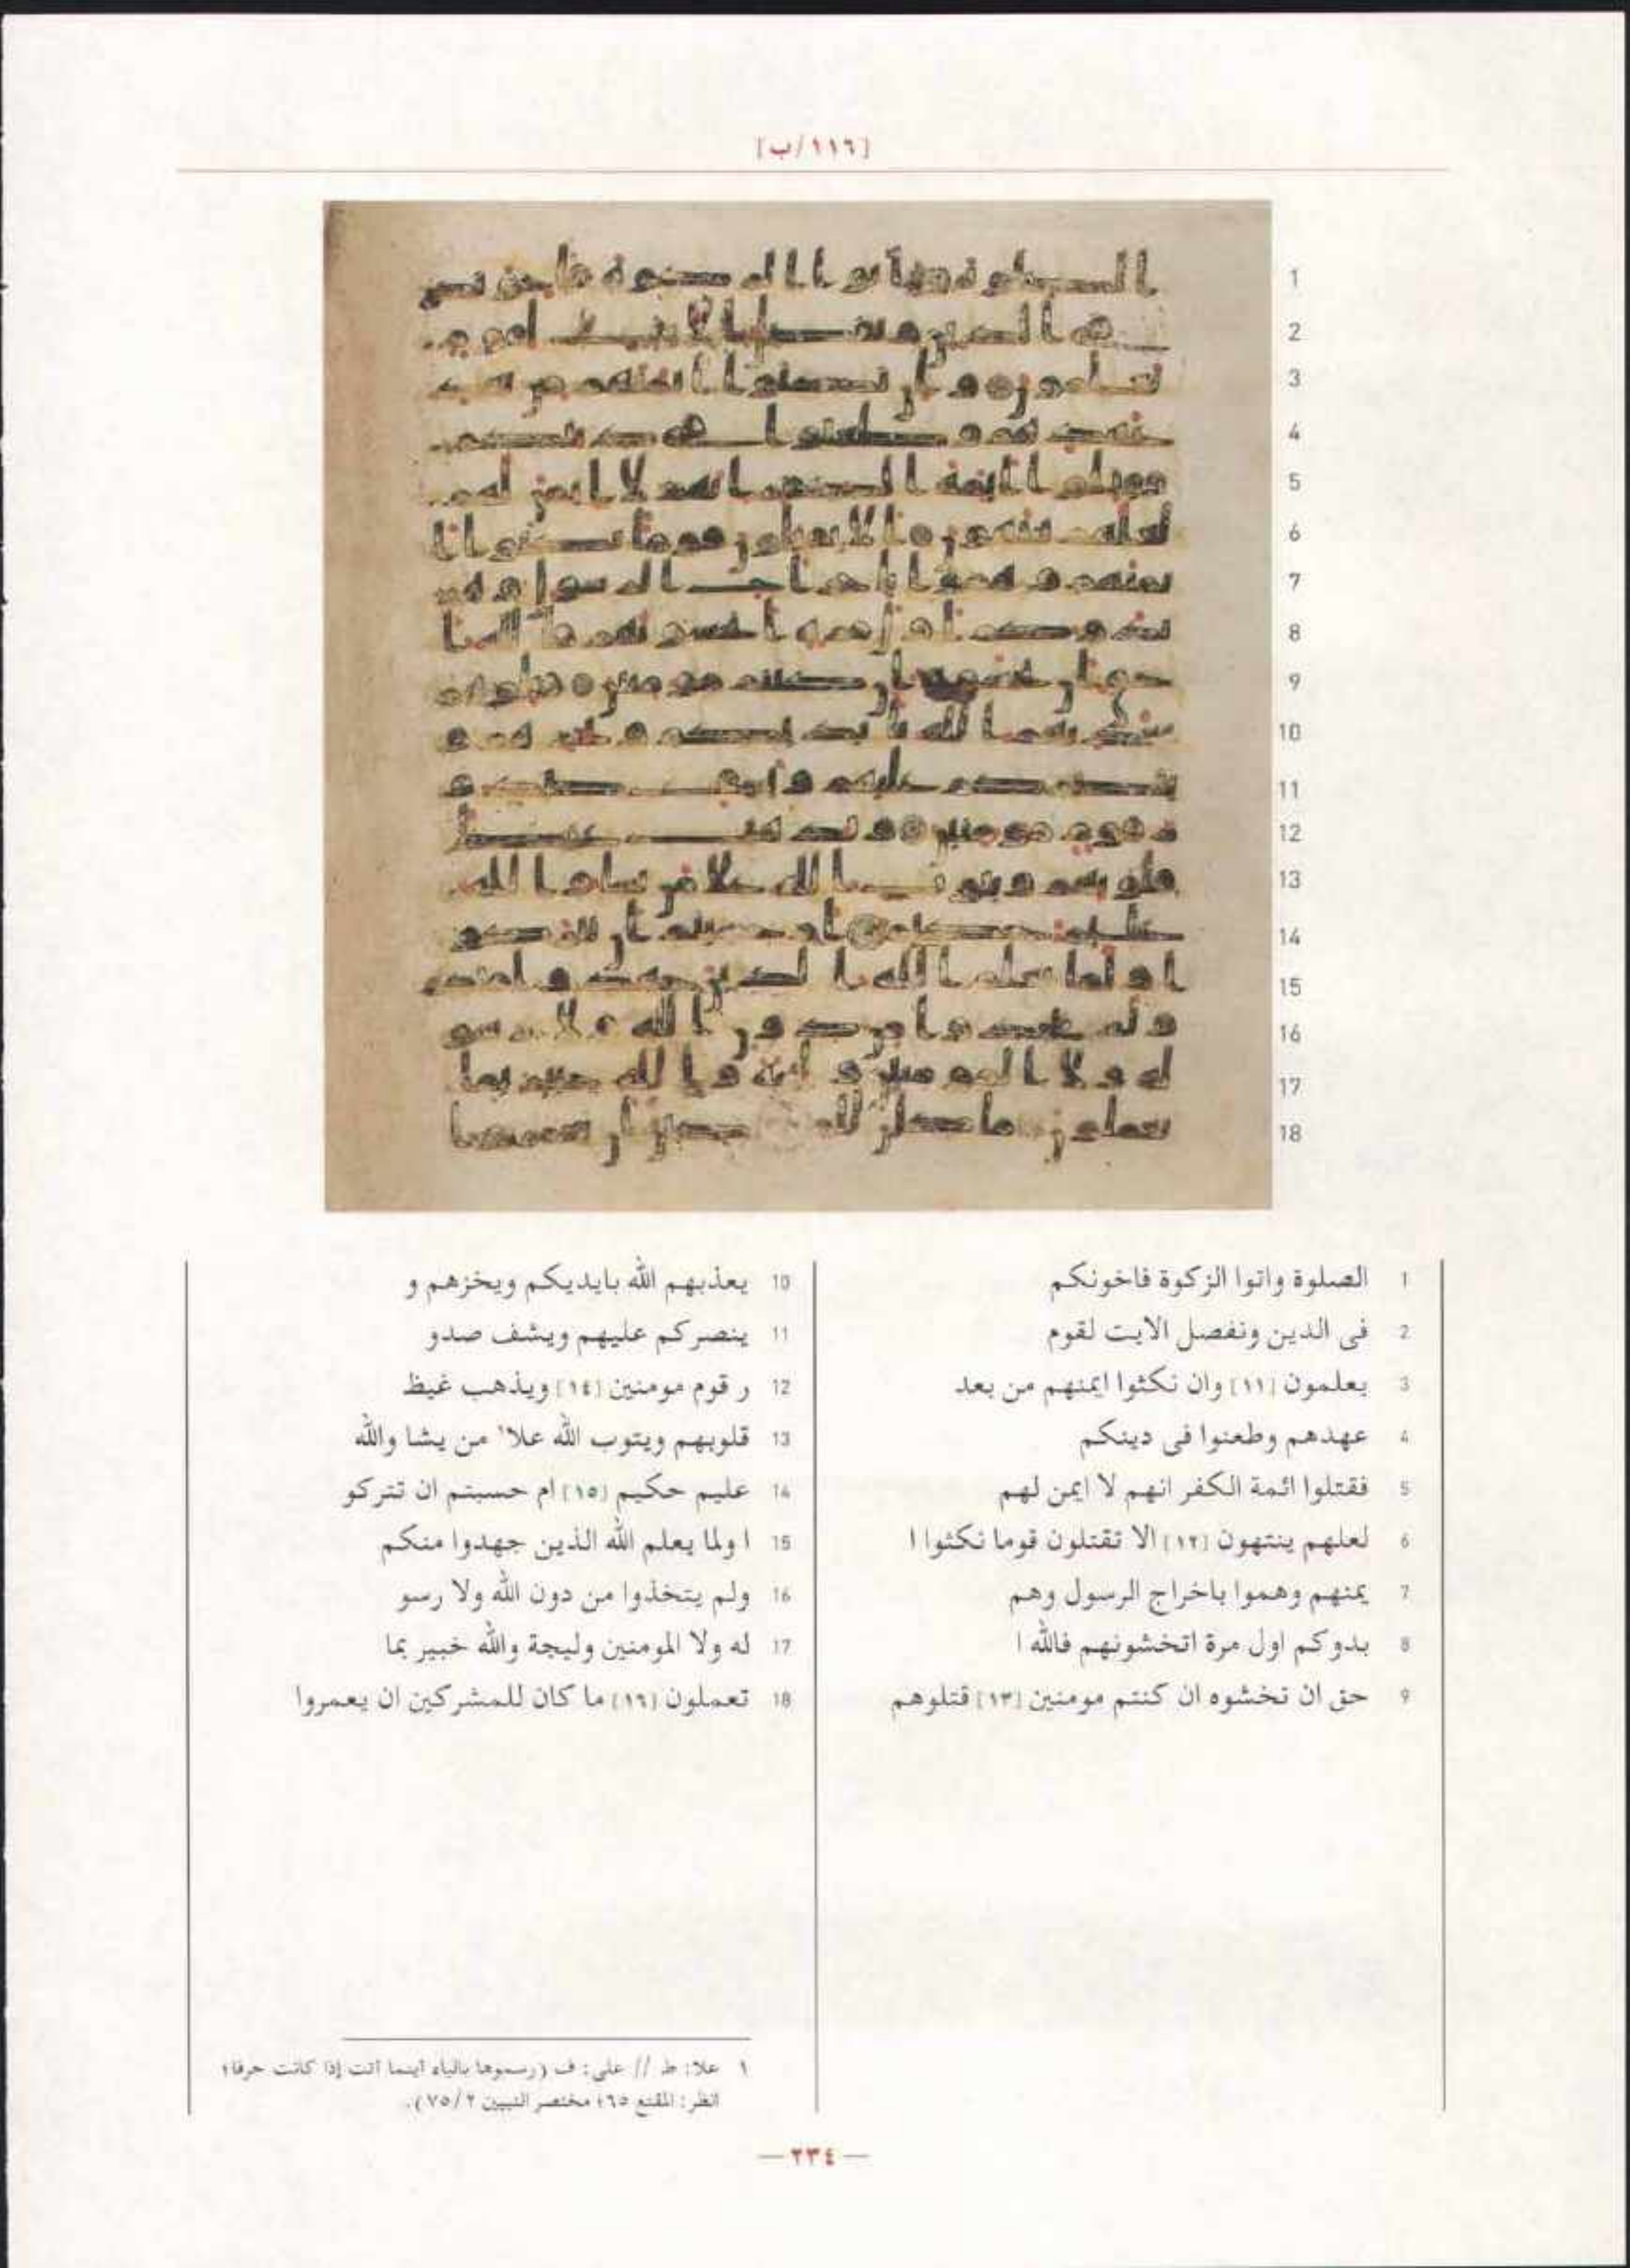 [١١٦/ب]
1
2
3
4
5
6
7
8
9
10
11
12
13
14
15
16
17
18
1 الصلوة واتوا الزكوة فاخونكم
2 فى الدين ونفصل الايت لقوم
3 يعلمون [١١] وان نكثوا ايمنهم من بعد
4 عهدهم وطعنوا فى دينكم
5 فقتلوا ائمة الكفر انهم لا ايمن لهم
6 لعلهم ينتهون [١٢] الا تقتلون قوما نكثوا ا
7 يمنهم وهموا باخراج الرسول وهم
8 بدوكم اول مرة اتخشونهم فالله ا
9 حق ان تخشوه ان كنتم مومنين [١٣] قتلوهم
10 يعذبهم الله بايديكم ويخزهم و
11 ينصركم عليهم ويشف صدو
12 ر قوم مومنين [١٤] ويذهب غيظ
13 قلوبهم ويتوب الله علا١ من يشا والله
14 عليم حكيم [١٥] ام حسبتم ان تتركو
15 ا ولما يعلم الله الذين جهدوا منكم
16 ولم يتخذوا من دون الله ولا رسو
17 له ولا المومنين وليجة والله خبير بما
18 تعملون [١٦] ما كان للمشركين ان يعمروا
١ علا: ط // على: ف (رسموها بالياء أينما أتت إذا كانت حرفا؛
انظر: المقنع ٦٥؛ مختصر التبيين ٢/ ٧٥).
— ٢٣٤ —